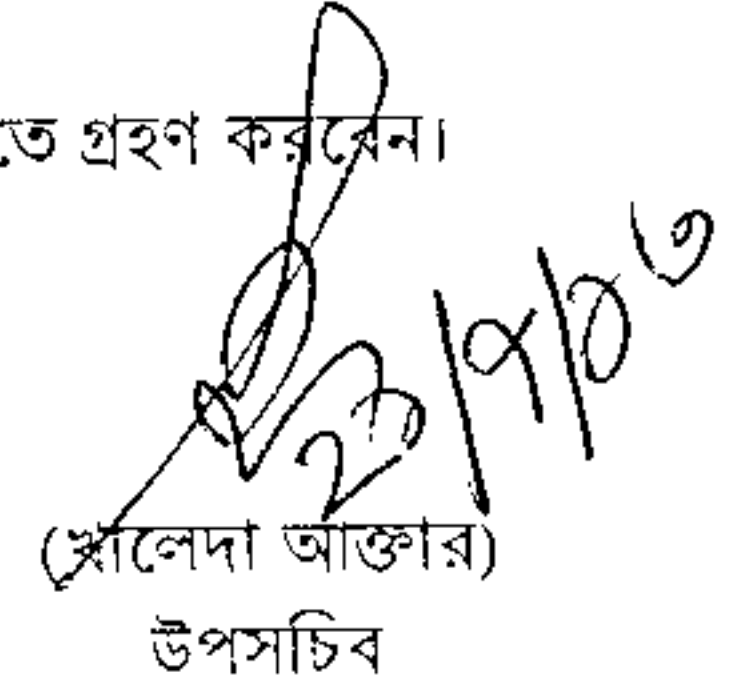 তে গ্রহণ করবেন।
(খালেদা আক্তার)
উপসচিব